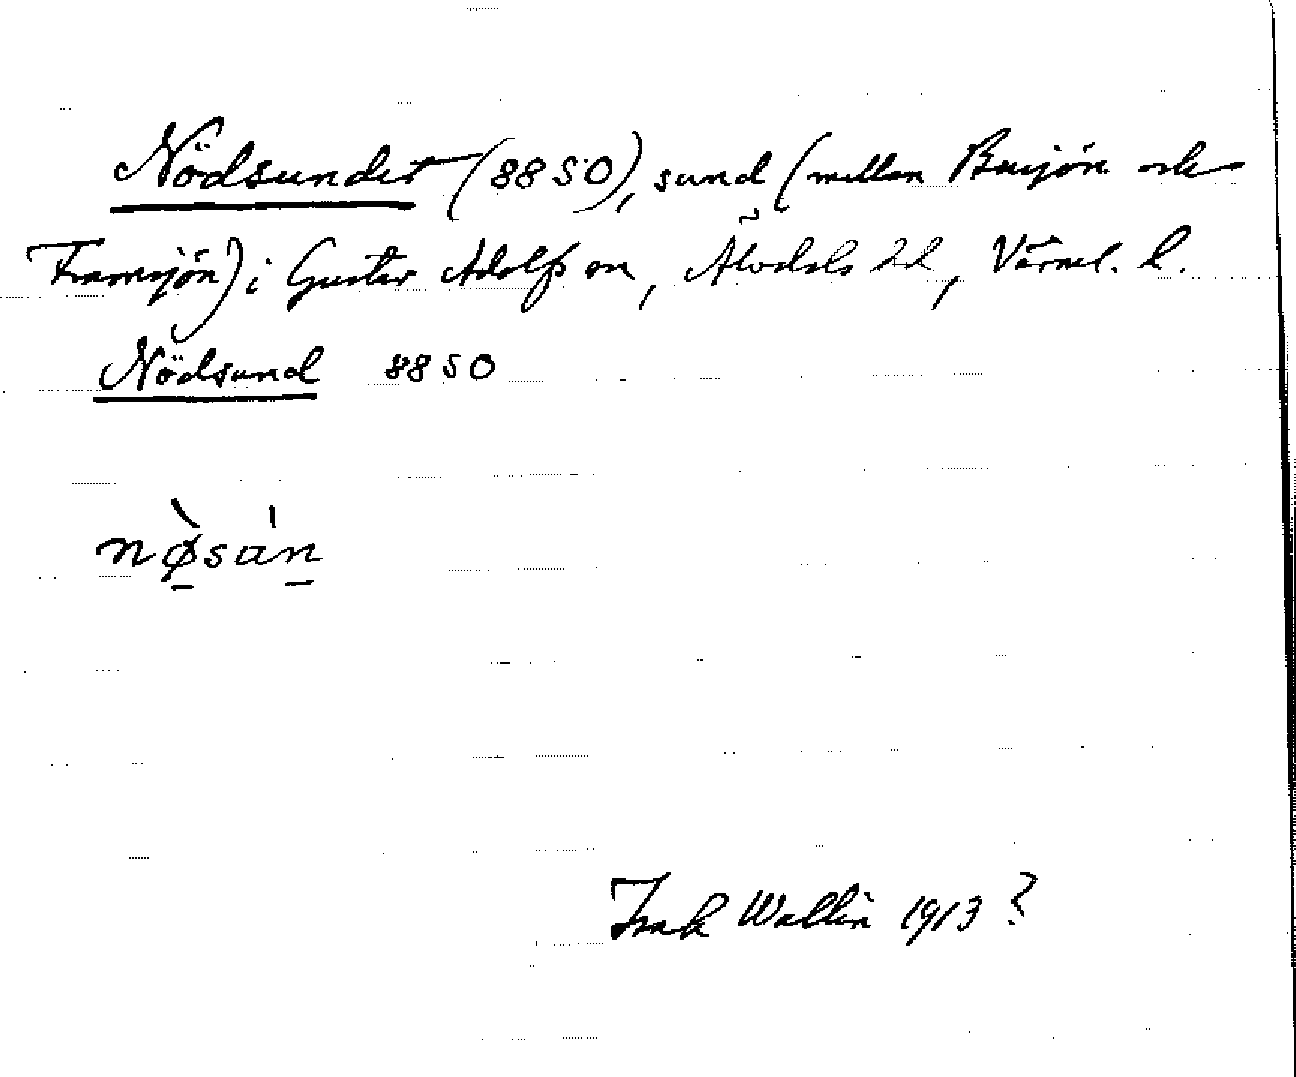 Nödsundet (8850), sund (mellan Busjön och
Framsjön) i Gustav Adolfs sn, Älvdals hd, Värml. l.
Nödsund 8850
nø̀sún
Isak Wallin 1913?